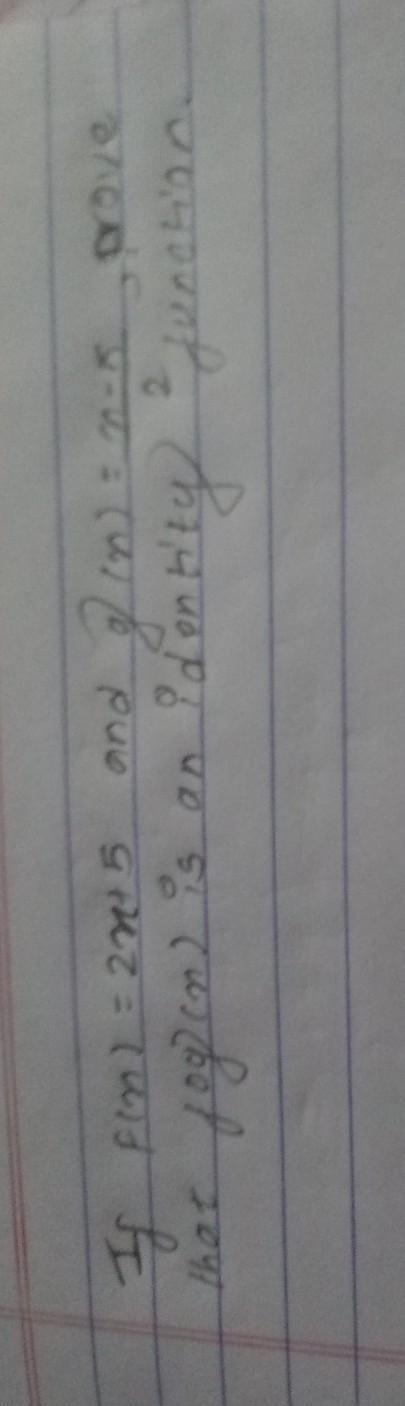 If f(x) = 2x+5 and g(x) = x-5/2, prove
that fog(x) is an identity function.